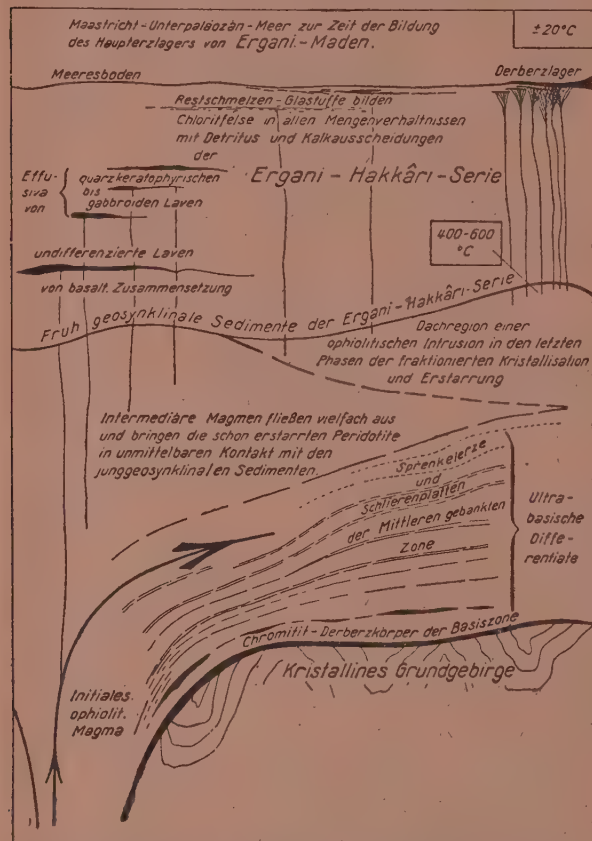 Maastricht-Unterpaläozän-Meer zur Zeit der Bildung
des Haupterzlagers von Ergani-Maden.
±20°C
Meeresboden
Derberzlager
Restschmelzen-Glastuffe bilden
Chloritfelse in allen Mengenverhältnissen
mit Detritus und Kalkausscheidungen
der
Ergani-Hakkâri-Serie
Effu-
siva
von
quarzkeratophyrischen
bis
gabbroiden Laven
400-600
°C
undifferenzierte Laven
von basalt. Zusammensetzung
Fruh geosynklinale Sedimente der Ergani-Hakkâri-Serie
Dachregion einer
ophiolitischen Intrusion in den letzten
Phasen der fraktionierten Kristallisation
und Erstarrung
Intermediäre Magmen fließen vielfach aus
und bringen die schon erstarrten Peridotite
in unmittelbaren Kontakt mit den
junggeosynklinalen Sedimenten.
Sprenkelerze
und
Schlierenplatten
der Mittleren gebankten
Zone
Ultra-
basische
Diffe-
rentiate
Chromitit-Derberzkörper der Basiszone
Kristallines Grundgebirge
Initiales
ophiolit.
Magma